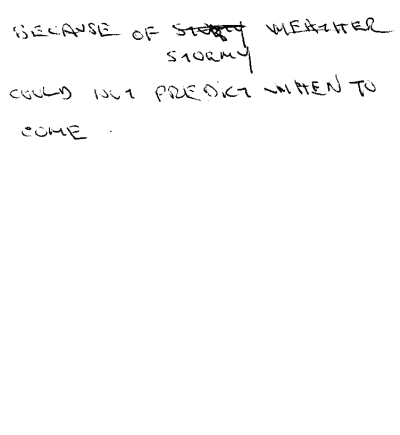 BECAUSE OF STORMY WEATHER
COULD NOT PREDICT WHEN TO
COME.